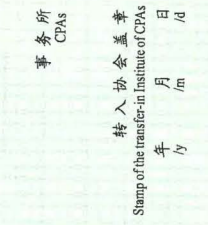 事 务 所
CPAs
转 入 协 会 盖 章
Stamp of the transfer-in Institute of CPAs
年 月 日
/y /m /d